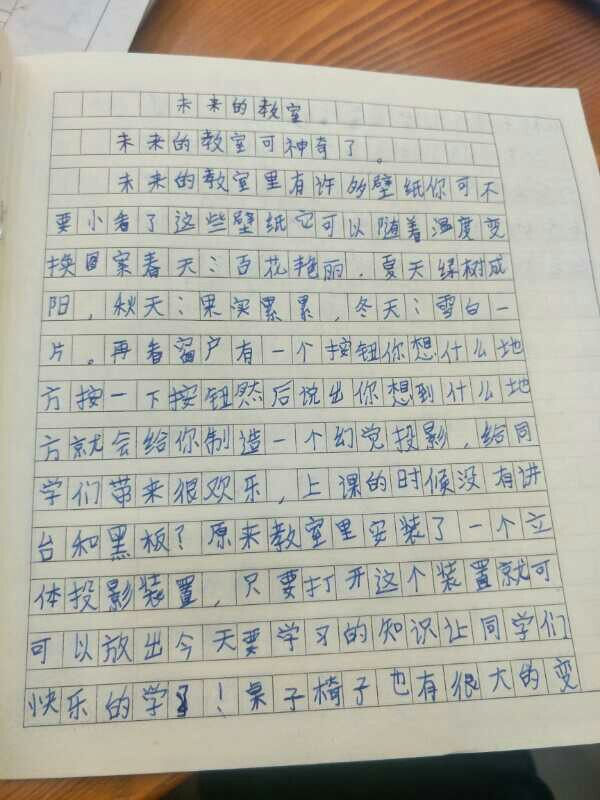 未来的教室
未来的教室可神奇了。
未来的教室里有许多壁纸你可不
要小看了这些壁纸它可以随着温度变
换图案春天:百花艳丽，夏天绿树成
阳，秋天:果实累累，冬天:雪白一
片。再看窗户有一个按钮你想什么地
方按一下按钮然后说出你想到什么地
方就会给你制造一个幻觉投影，给同
学们带来很欢乐，上课的时候没有讲
台和黑板?原来教室里安装了一个立
体投影装置，只要打开这个装置就可
可以放出今天要学习的知识让同学们
快乐的学习!桌子椅子也有很大的变